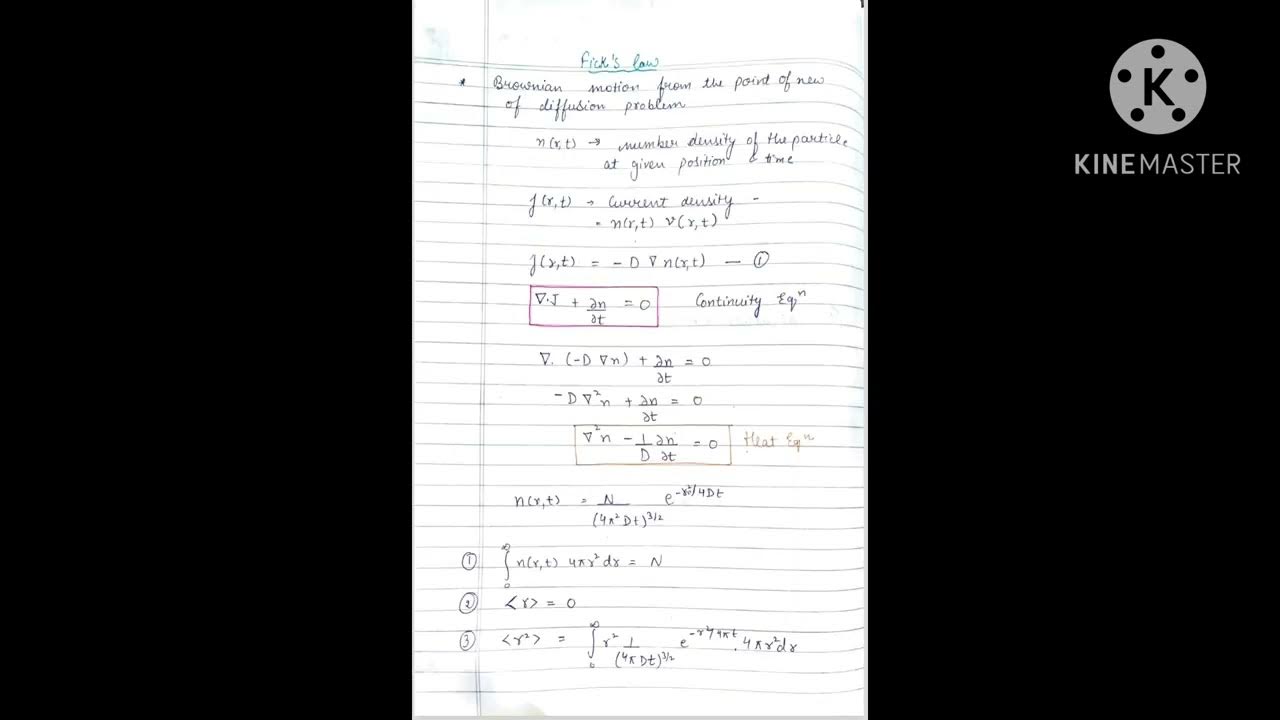 Fick's law
* Brownian motion from the point of new
of diffusion problem
n(r,t) → number density of the particle
at given position & time
J(r,t) → Current density -
= n(r,t) v(r,t)
J(r,t) = - D ∇ n(r,t) — ①
∇.J + ∂n/∂t = 0 Continuity Eqⁿ
∇. (-D ∇n) + ∂n/∂t = 0
-D ∇²n + ∂n/∂t = 0
∇²n - 1/D ∂n/∂t = 0 Heat Eqⁿ
n(r,t) = N/(4π²Dt)^3/2 e^-r²/4Dt
① ∫₀^∞ n(r,t) 4πr²dr = N
② <r> = 0
③ <r²> = ∫₀^∞ r² 1/(4πDt)^3/2 e^-r²/4πt . 4πr²dr
K
KINEMASTER